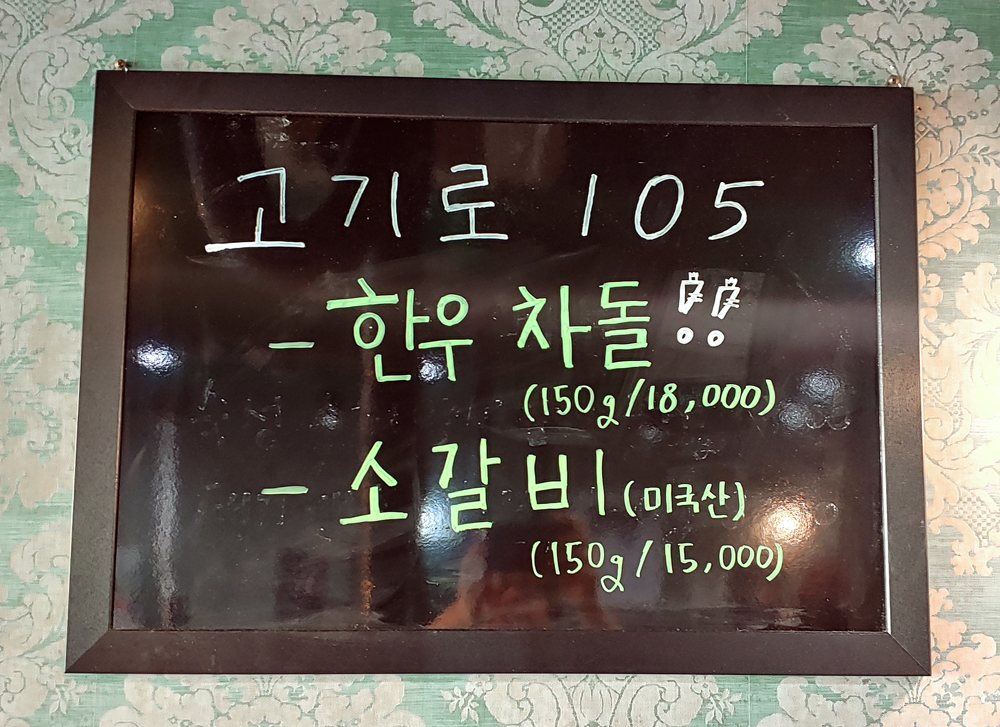 고기로 105
- 한우 차돌 !!
(150g/18,000)
- 소갈비 (미국산)
(150g/15,000)